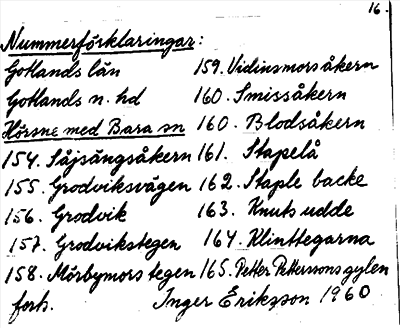 16.
Nummerförklaringar:
Gotlands län
Gotlands n. hd
Hörsne med Bara sn
154. Såjsängsåkern
155. Grodviksvägen
156. Grodvik
157. Grodvikstegen
158. Mörbymors tegen
forts.
159. Vidinsmorsåkern
160. Smissåkern
160. Blodsåkern
161. Stapelå
162. Staple backe
163. Knuts udde
164. Klinttegarna
165. Petter Petterssons gylen
Inger Eriksson 1960